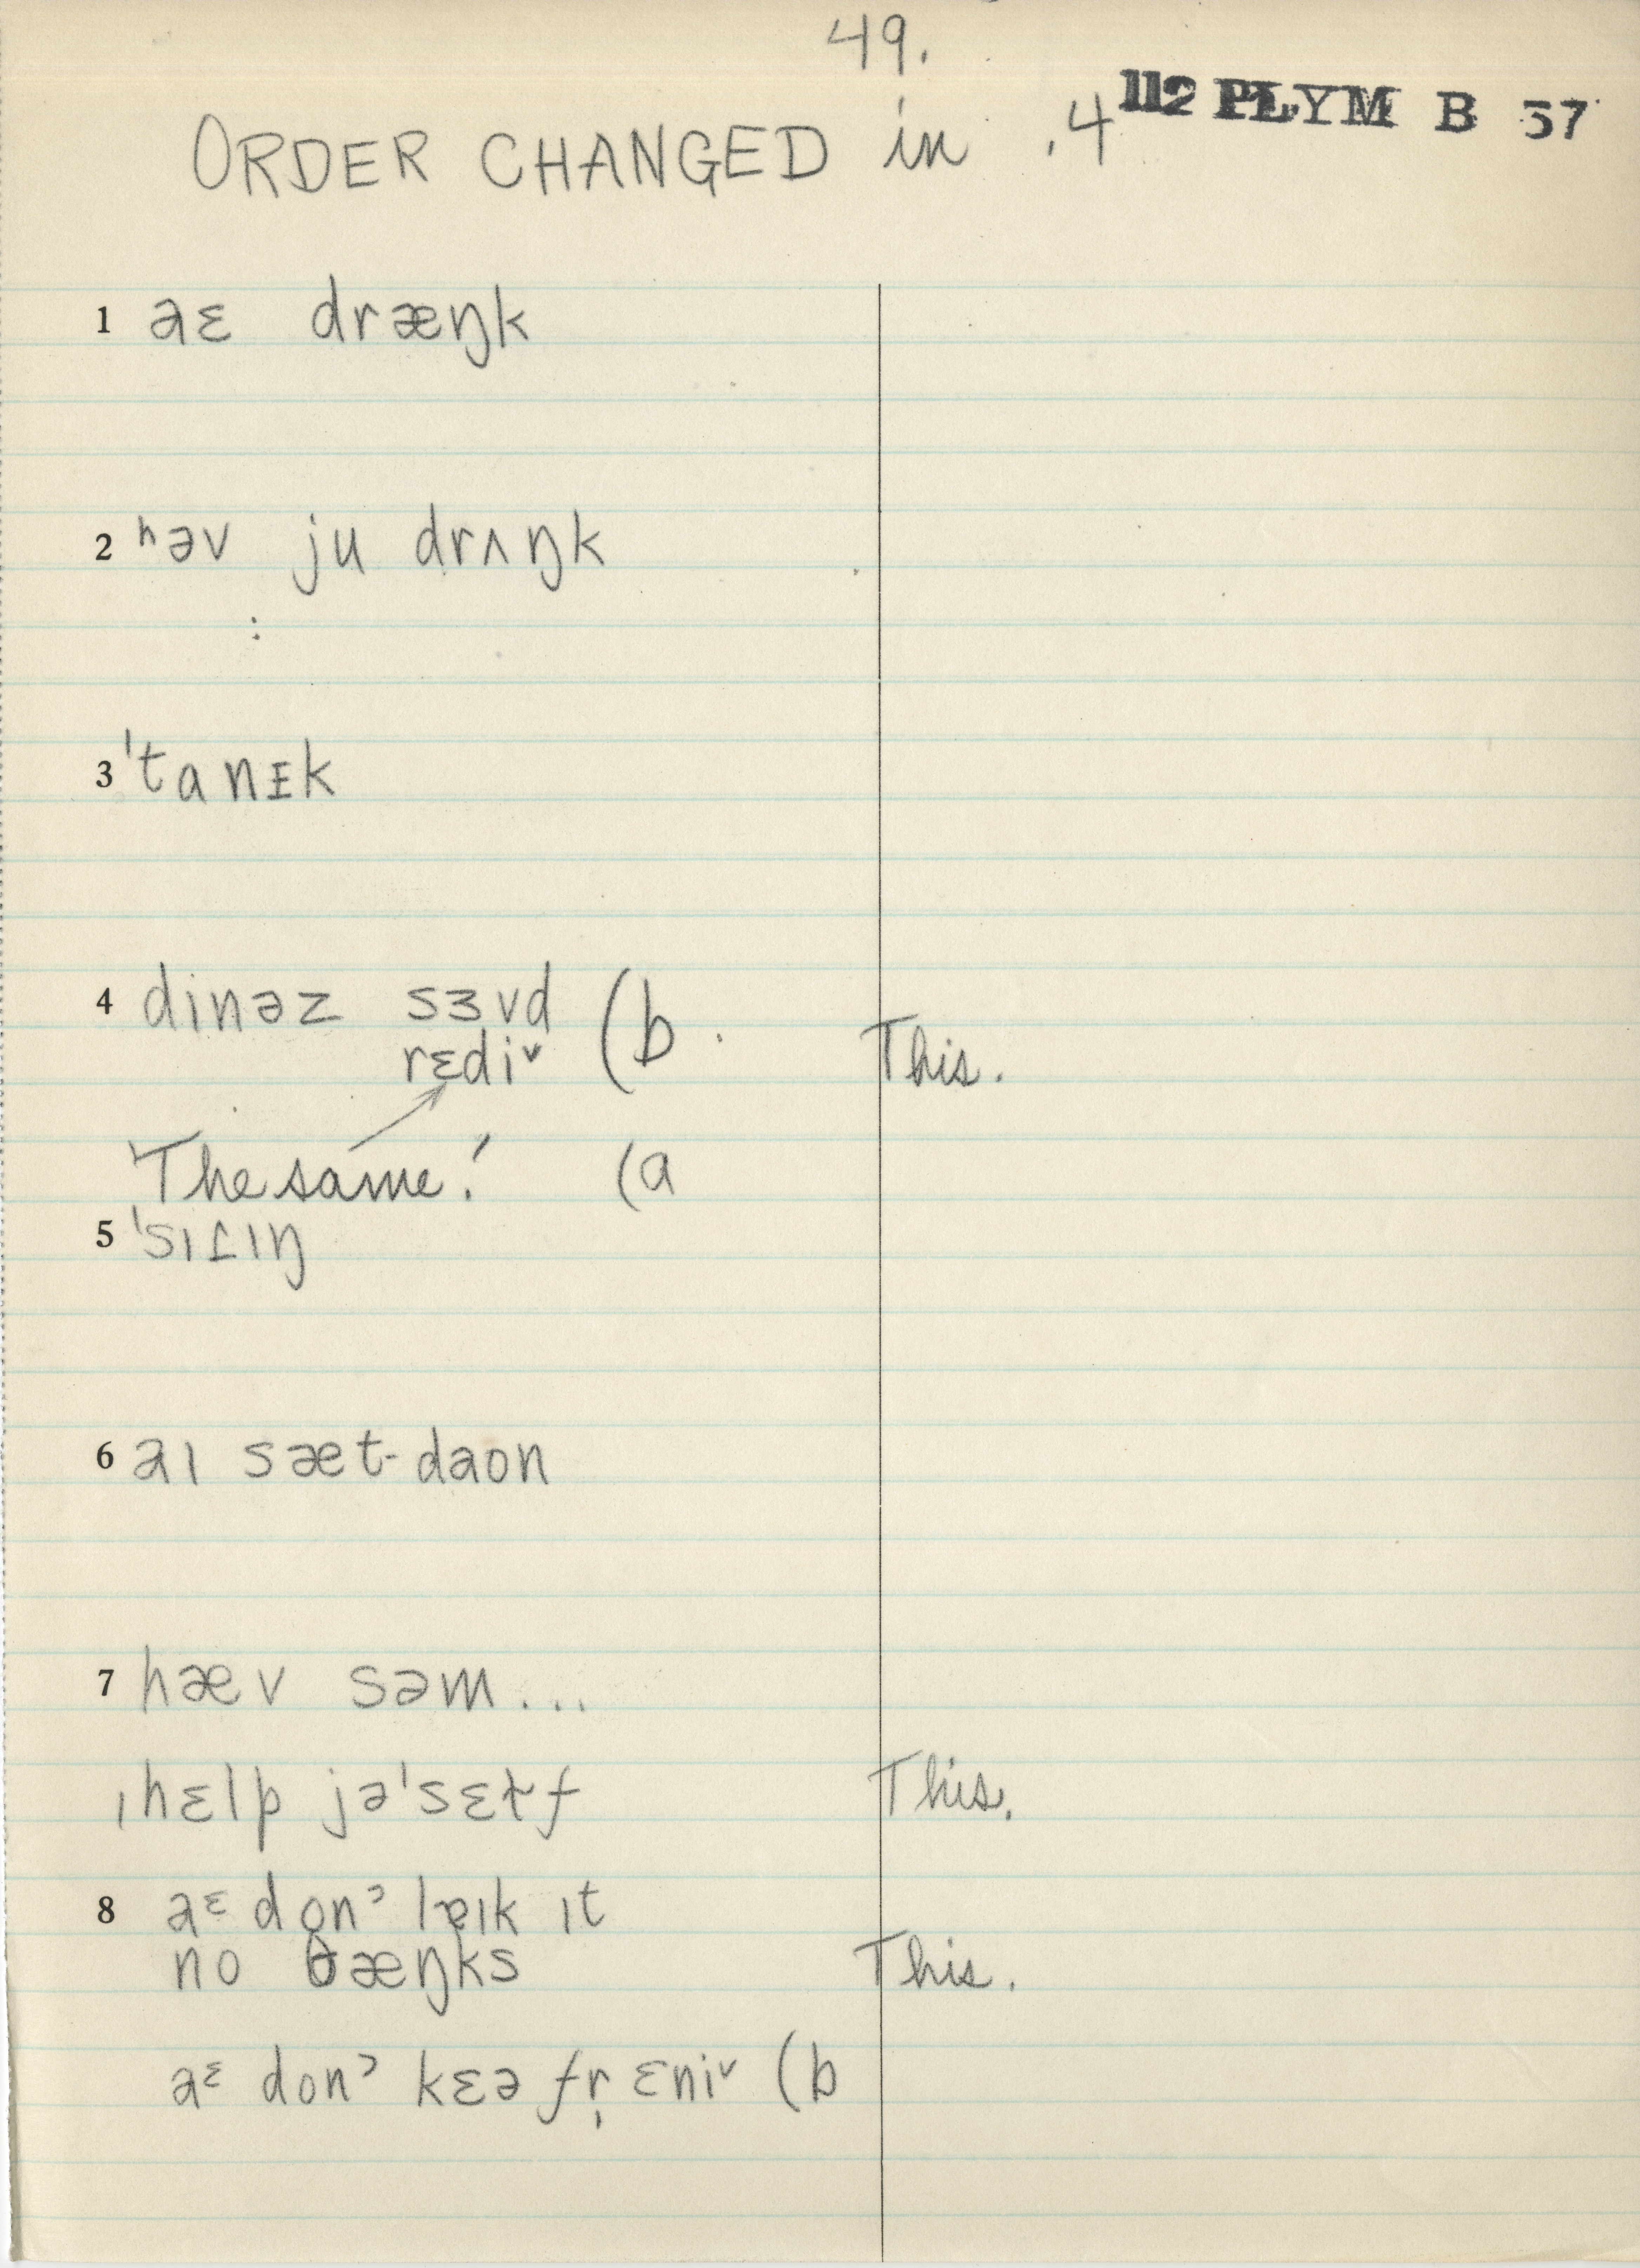 49.
ORDER CHANGED in .4 112 PLYM B 57
1 aɛ dræŋk
2 ʰəv ju drʌŋk
:
3 ˈtanɪk
4 dinəz sɜvd (b .
rɛdiᵛ This.
'The same!' (a
5 ˈsɪɾɪŋ
6 aɪ sæt-daon
7 hæv səm...
ˌhɛlp jəˈsɛɫf This.
8 aᵋ donˀ lɐɪk ɪt
no θæŋks This.
aᵋ donˀ kɛə fr̩ ɛniᵛ (b